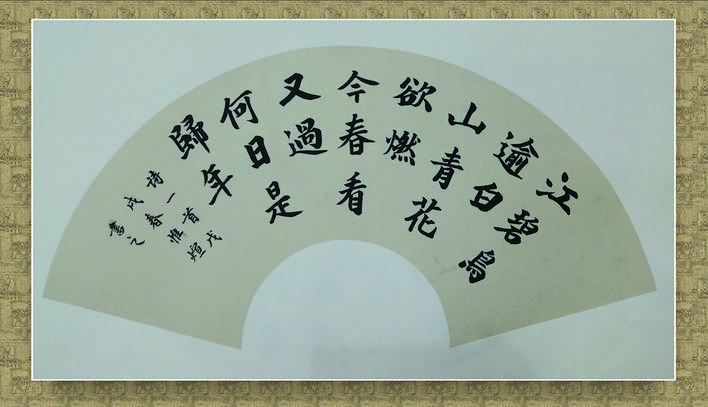 江碧鳥
逾白
山青花
欲燃
今春看
又過
何日是
歸年
诗一首戊
戌春惟煊
書之